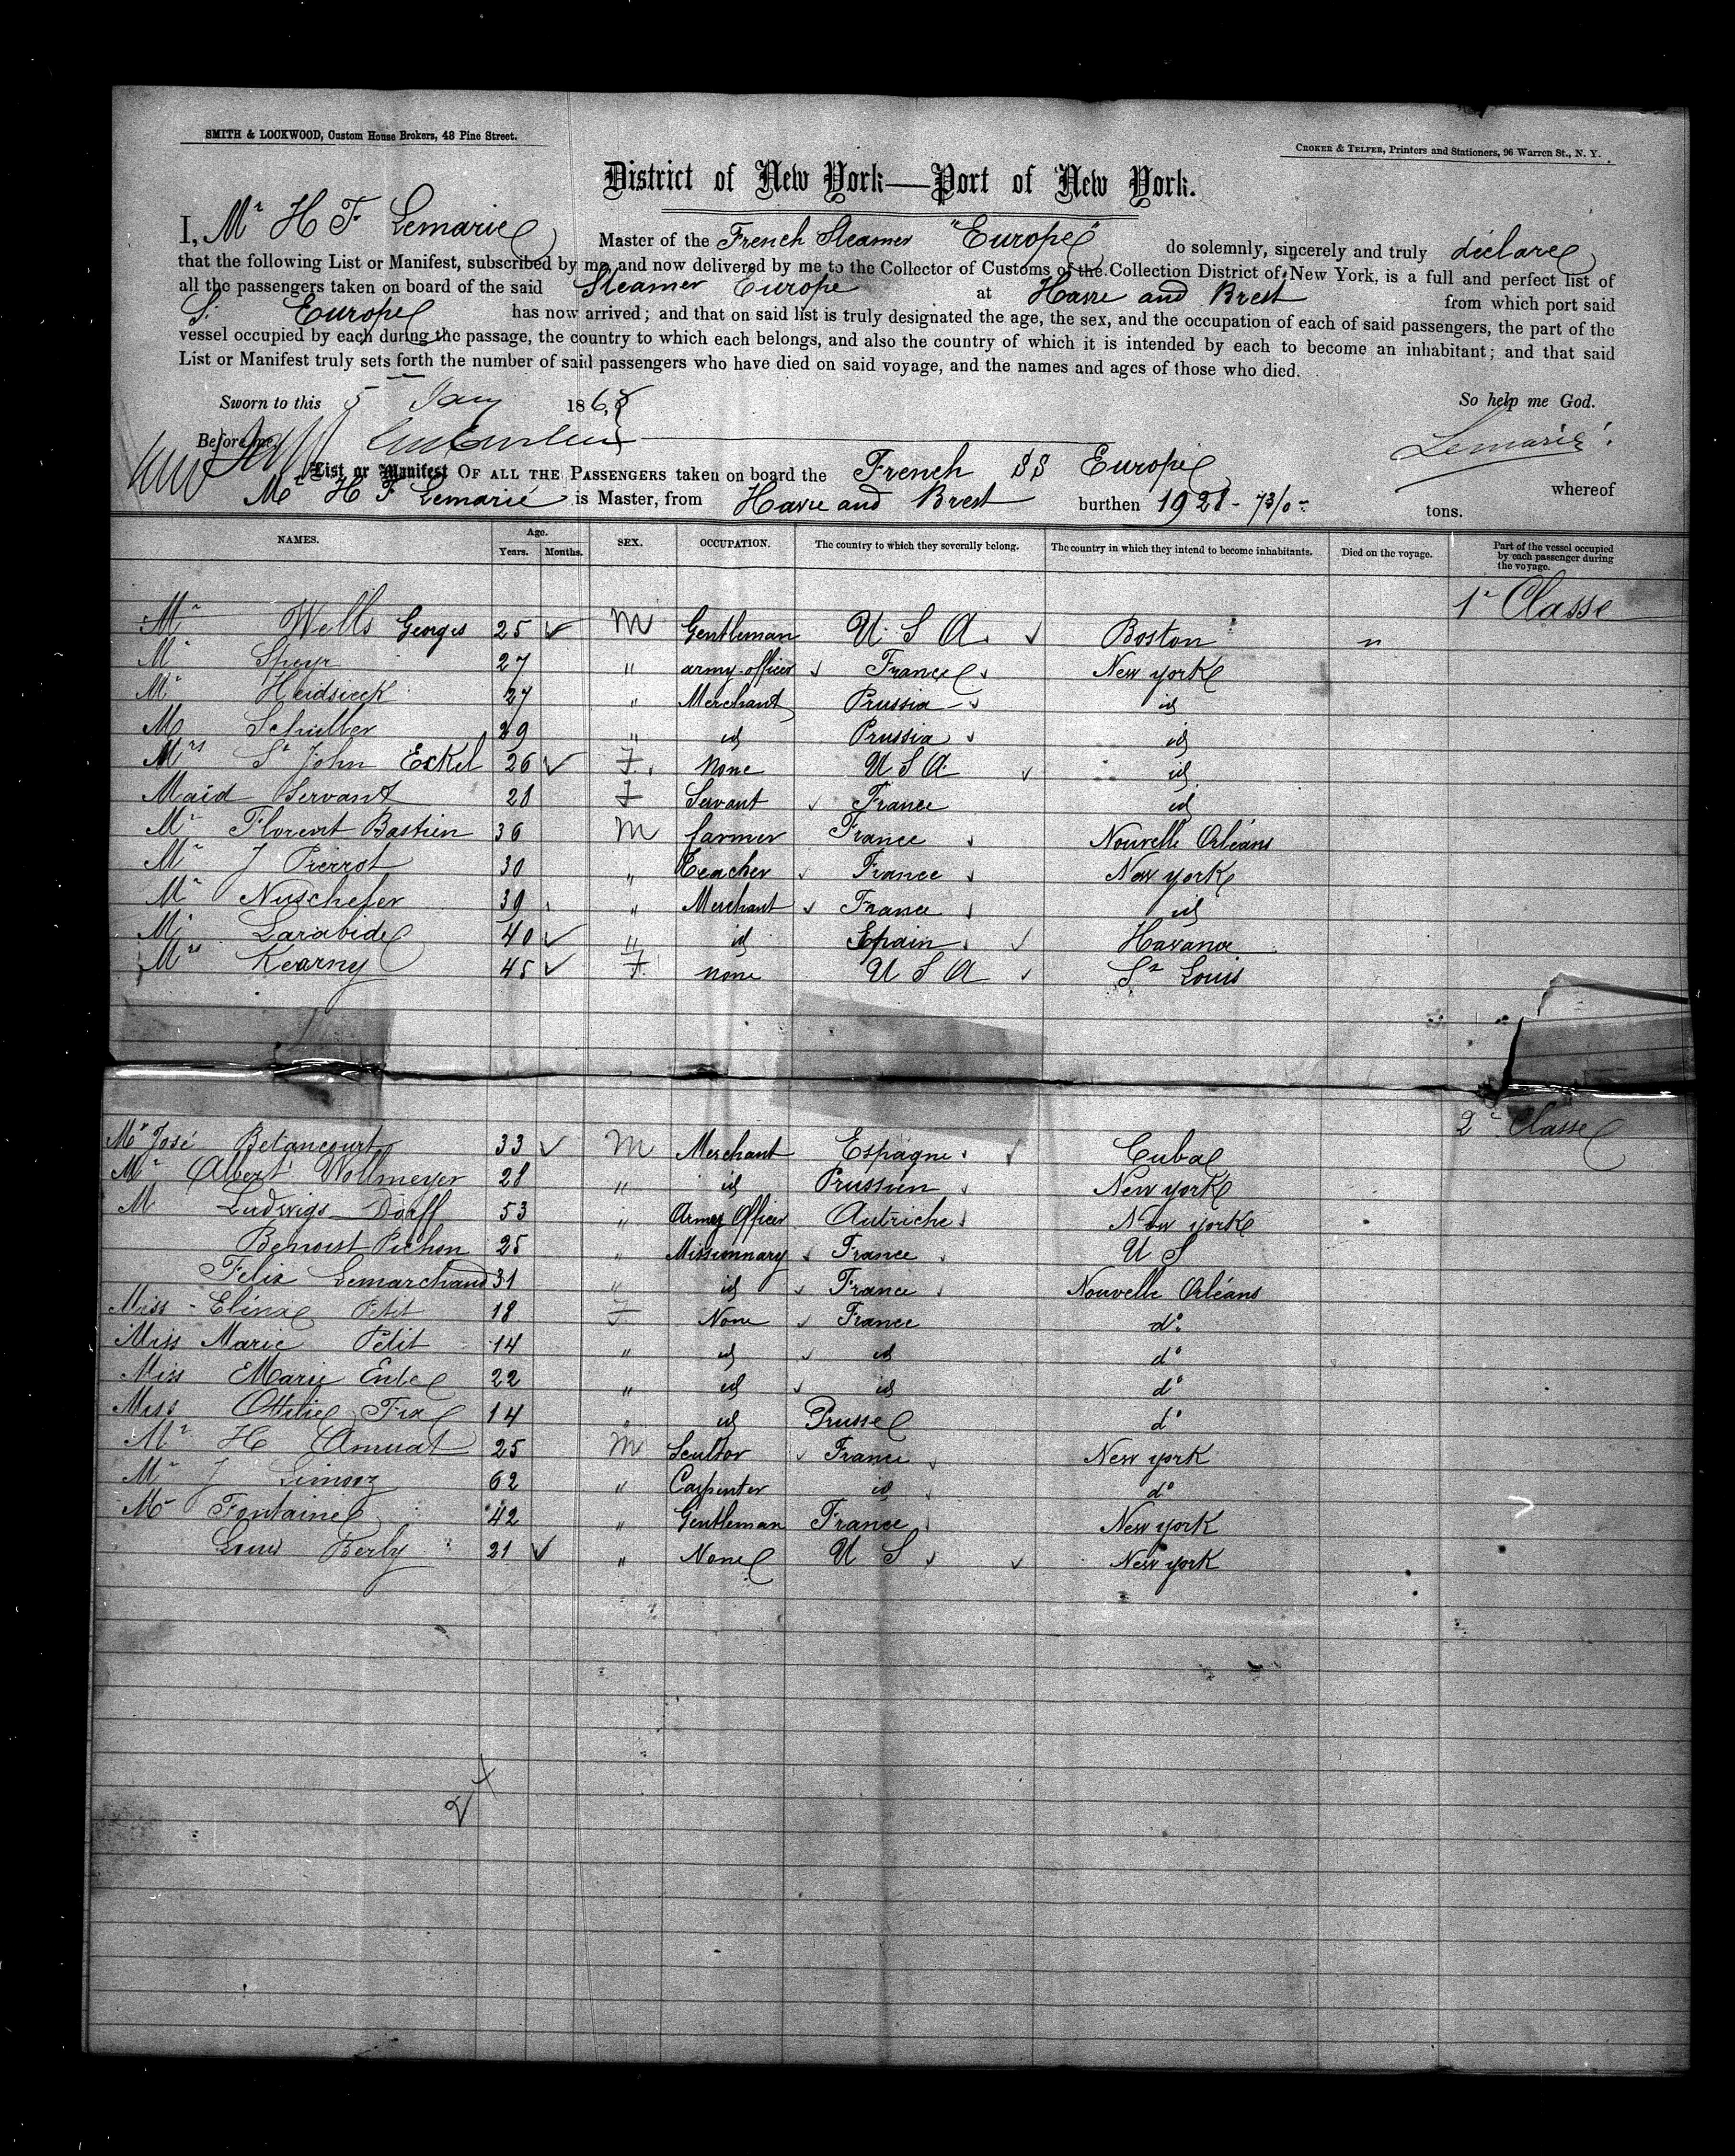 SMITH & LOCKWOOD, Custom House Brokers, 48 Pine Street.
CROKER & TELFER, Printers and Stationers, 96 Warren St., N. Y.
District of New York—Port of New York.
I, Mr H F Lemarie Master of the French Steamer "Europe" do solemnly, sincerely and truly déclare
that the following List or Manifest, subscribed by me, and now delivered by me to the Collector of Customs of the Collection District of New York, is a full and perfect list of
all the passengers taken on board of the said Steamer Europe at Havre and Brest from which port said
S. Europe has now arrived; and that on said list is truly designated the age, the sex, and the occupation of each of said passengers, the part of the
vessel occupied by each during the passage, the country to which each belongs, and also the country of which it is intended by each to become an inhabitant; and that said
List or Manifest truly sets forth the number of said passengers who have died on said voyage, and the names and ages of those who died.
Sworn to this 5 Jany 1868 So help me God.
Before me, Lemarié
List or Manifest OF ALL THE PASSENGERS taken on board the French SS Europe whereof
Mr H F Lemarié is Master, from Havre and Brest burthen 1921 - 73/0 tons.
NAMES. Age. Years. Months. SEX. OCCUPATION. The country to which they severally belong. The country in which they intend to become inhabitants. Died on the voyage. Part of the vessel occupied by each passenger during the voyage.
1r Classe
Mr Wells Georges 25 M Gentleman U S A. Boston "
Mr Speyr 27 " army officer France New york
Mr Heidsieck 27 " Merchant Prussia id
M Schuller 29 " id Prussia id
Mrs St John Eckel 26 F. None U S A id
Maid Servant 28 F Servant France id
Mr Florent Bastien 36 M farmer France Nouvelle Orléans
Mr J Pierrot 30 " Teacher France New york
Mr Nuschefer 39 " Merchant France id
Mr Larabide 40 " id Spain Havana
Mrs Kearny 45 F. none U S A St Louis
2e Classe
Mr José Betancourt 33 M Merchant Espagne Cuba
Mr Albert Wollmeyer 28 " id Prussien New york
M Ludwigs Dorff 53 " Army Officer Autriche New yorke
Benoist Pichon 25 " Missionnary France U S
Felix Lemarchand 31 " id France Nouvelle Orléans
Miss Elina Petit 18 F None France do
Miss Marie Petit 14 " id id do
Miss Marie 22 " id id do
Miss Ottilie 14 " id Prusse do
Mr H 25 M Scultor France New york
Mr J 62 " Carpenter id do
Mr Fontaine 42 " Gentleman France New york
Louis Berly 21 " None U S New york
24